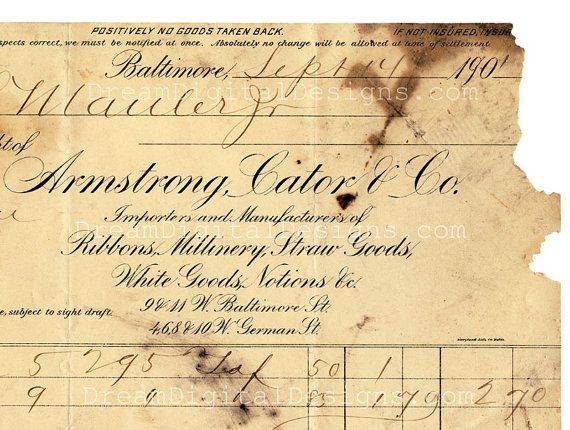 POSITIVELY NO GOODS TAKEN BACK. IF NOT INSURED, INSUR
spects correct, we must be notified at once. Absolutely no change will be allowed at time of settlement
Baltimore, Sept 14 1901
Mauler Jr
DreamDigitalDesigns.com
ht of
Armstrong, Cator & Co.
Importers and Manufacturers of
DreamDigitalDesigns.com
Ribbons, Millinery, Straw Goods,
White Goods, Notions &c.
9 & 11 W. Baltimore St.
e, subject to sight draft.
4,6,8 & 10 W. German St.
Maryland Lith. Co. Balto.
5 295 Taf 50 1
DreamDigitalDesigns.com
9 1 79 2 70